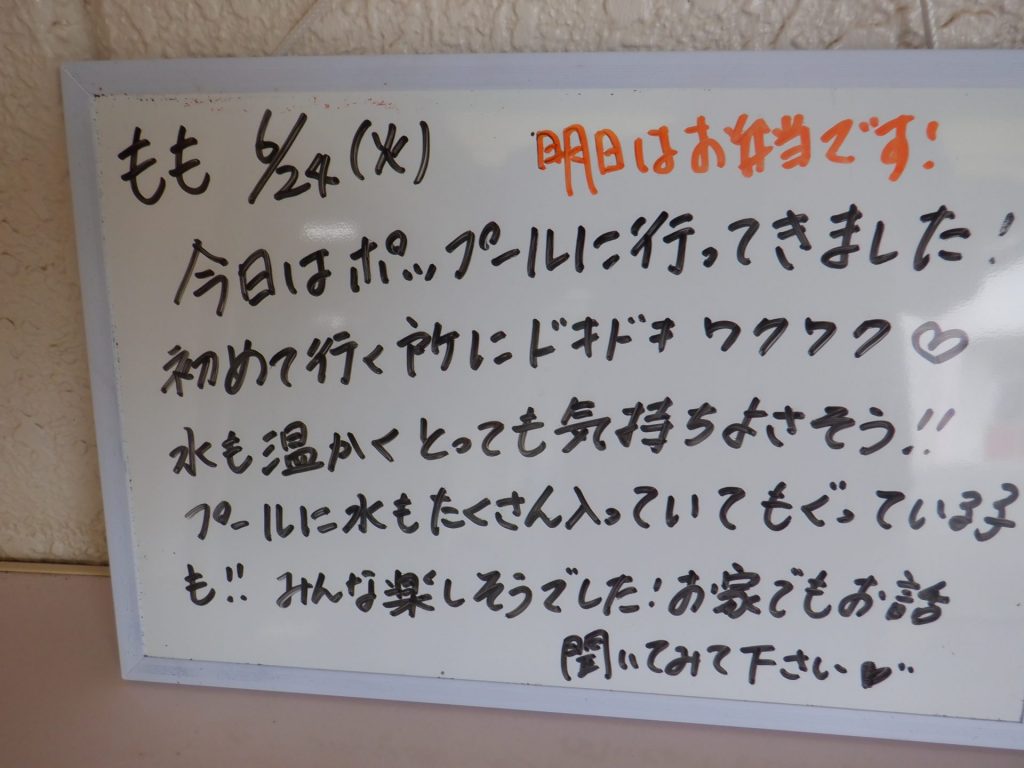 もも 6/24(火) 明日はお弁当です!
今日はポップールに行ってきました!
初めて行く所にドキドキワクワク♡
水も温かくとっても気持ちよさそう!!
プールに水もたくさん入っていてもぐっている子
も!! みんな楽しそうでした!お家でもお話
聞いてみて下さい♥